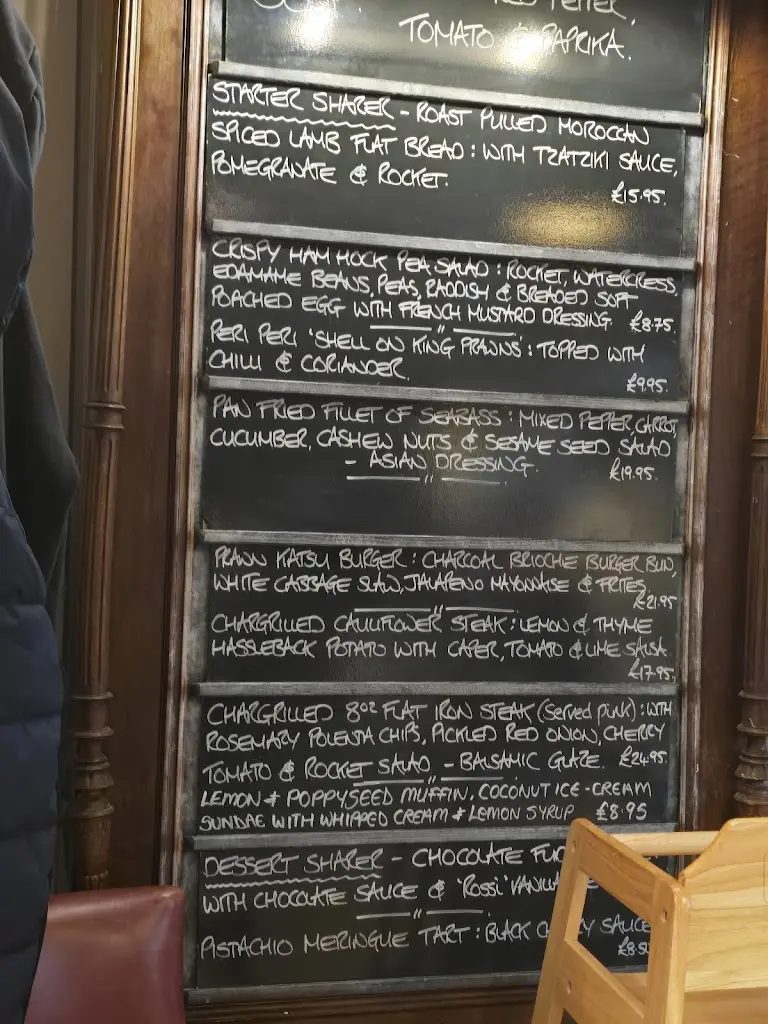 TOMATO & PAPRIKA.
STARTER SHARER - ROAST PULLED MOROCCAN
SPICED LAMB FLAT BREAD : WITH TZATZIKI SAUCE,
POMEGRANATE & ROCKET.
£15.95.
CRISPY HAM HOCK PEA SALAD : ROCKET, WATERCRESS,
EDAMAME BEANS, PEAS, RADDISH & BREADED SOFT
POACHED EGG WITH FRENCH MUSTARD DRESSING. £8.75.
PERI PERI 'SHELL ON KING PRAWNS' : TOPPED WITH
CHILLI & CORIANDER.
£9.95.
PAN FRIED FILLET OF SEABASS : MIXED PEPPER, CARROT,
CUCUMBER, CASHEW NUTS & SESAME SEED SALAD
- ASIAN DRESSING. £19.95.
PRAWN KATSU BURGER : CHARCOAL BRIOCHE BURGER BUN,
WHITE CABBAGE SLAW, JALAPENO MAYONAISE & FRITES.
£21.95
CHARGRILLED CAULIFLOWER STEAK : LEMON & THYME
HASSLEBACK POTATO WITH CAPER, TOMATO & LIME SALSA
£17.95.
CHARGRILLED 8oz FLAT IRON STEAK (Served pink) : WITH
ROSEMARY POLENTA CHIPS, PICKLED RED ONION, CHERRY
TOMATO & ROCKET SALAD - BALSAMIC GLAZE. £24.95.
LEMON & POPPYSEED MUFFIN, COCONUT ICE-CREAM
SUNDAE WITH WHIPPED CREAM & LEMON SYRUP £8.95
DESSERT SHARER - CHOCOLATE
WITH CHOCOLATE SAUCE & 'ROSSI' VANILLA
PISTACHIO MERINGUE TART : BLACK SAUCE